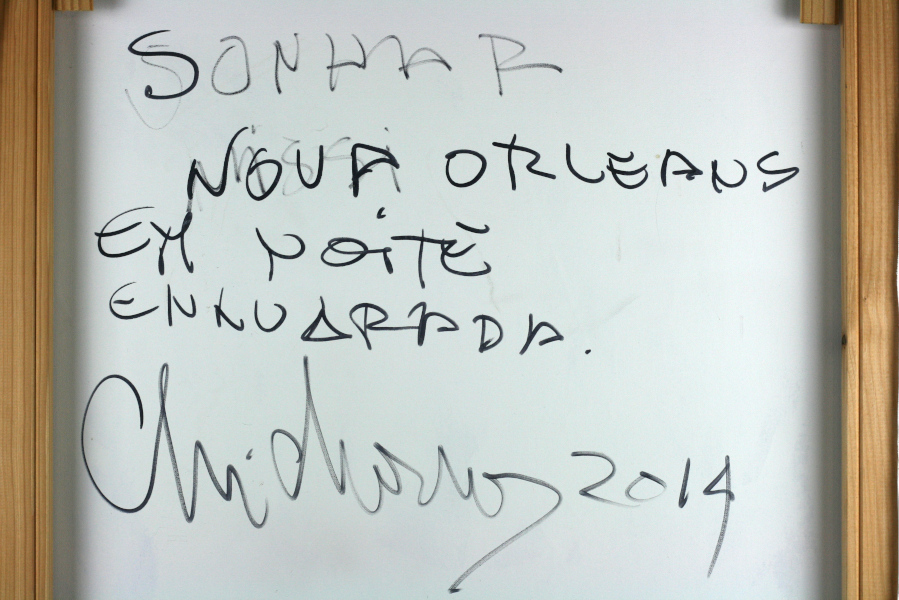 SONHAR
NOVA ORLEANS
EM NOITE
ENLUARADA.
2014